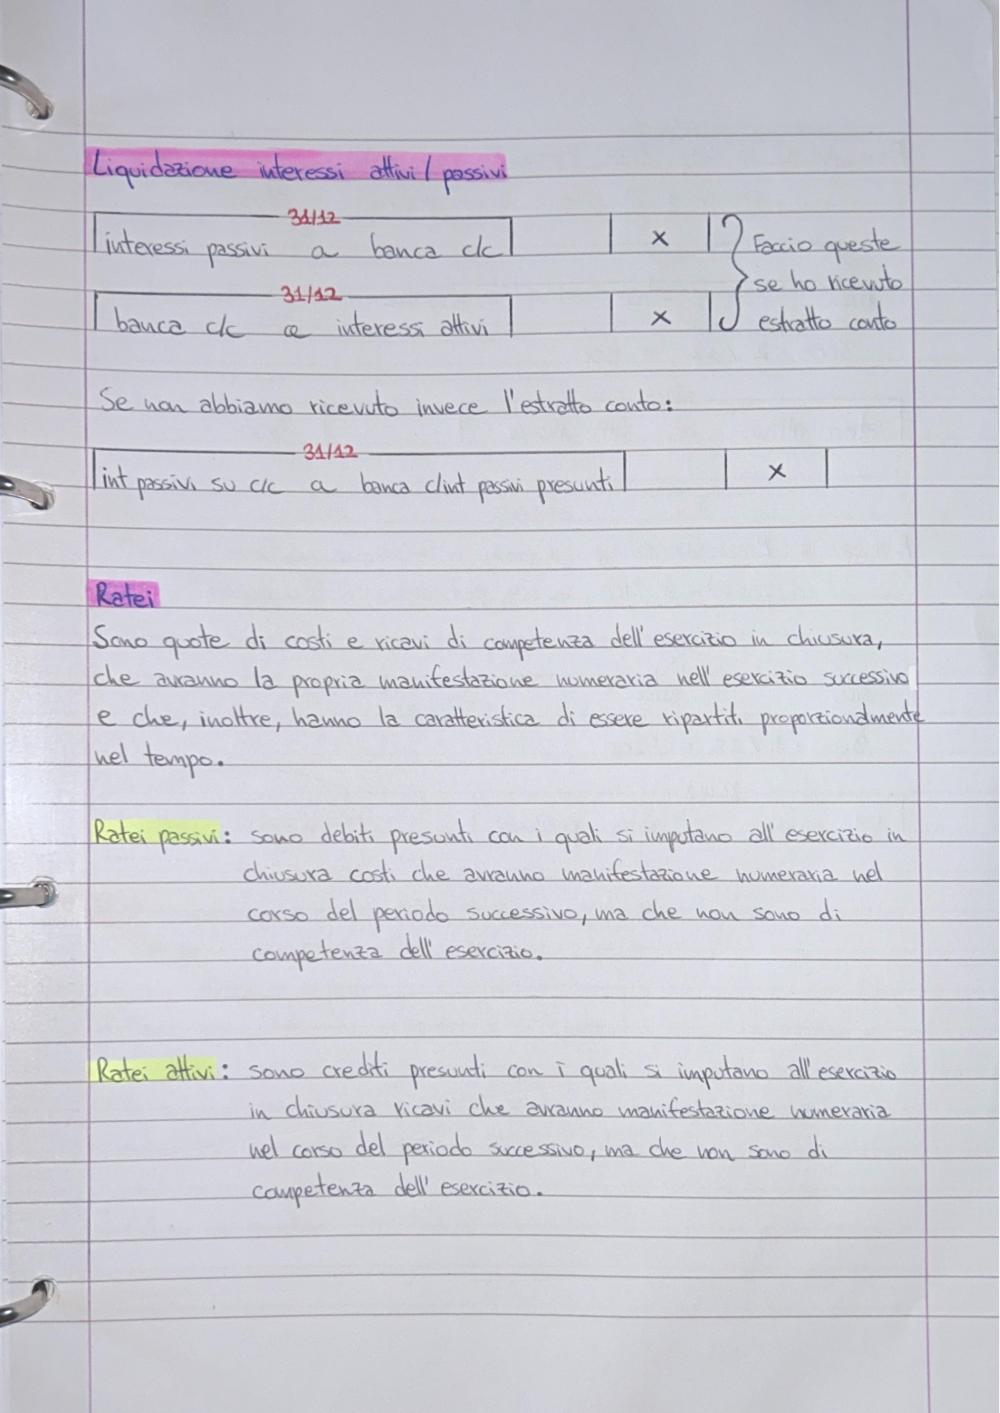 Liquidazione interessi attivi / passivi
31/12
interessi passivi a banca c/c x Faccio queste
31/12 se ho ricevuto
banca c/c a interessi attivi x estratto conto
Se non abbiamo ricevuto invece l'estratto conto:
31/12
int passivi su c/c a banca c/int passivi presunti x
Ratei
Sono quote di costi e ricavi di competenza dell'esercizio in chiusura,
che avranno la propria manifestazione numeraria nell'esercizio successivo
e che, inoltre, hanno la caratteristica di essere ripartiti proporzionalmente
nel tempo.
Ratei passivi: sono debiti presunti con i quali si imputano all'esercizio in
chiusura costi che avranno manifestazione numeraria nel
corso del periodo successivo, ma che non sono di
competenza dell'esercizio.
Ratei attivi: sono crediti presunti con i quali si imputano all'esercizio
in chiusura ricavi che avranno manifestazione numeraria
nel corso del periodo successivo, ma che non sono di
competenza dell'esercizio.